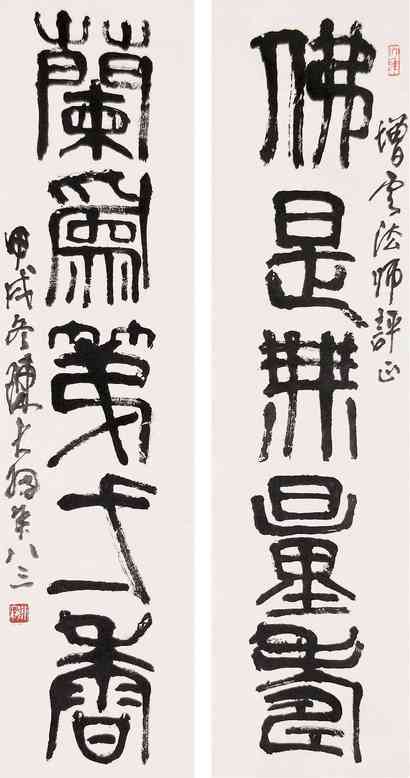 佛是無量壽
增云法师評正
蘭爲第弌香
甲戌冬陳大羽年八三